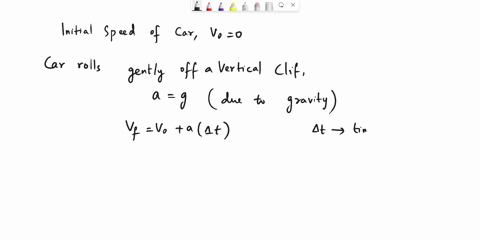 Initial Speed of Car, V₀ = 0
Car rolls gently off a Vertical Clif,
a = g (due to gravity)
V_f = V₀ + a (Δt) Δt → tin